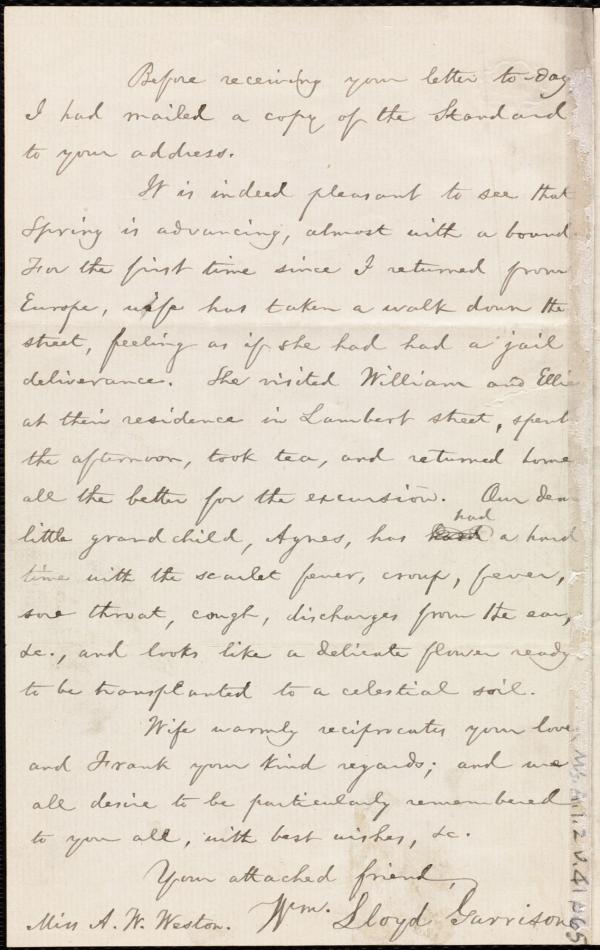 Before receiving your letter to-day
I had mailed a copy of the Standard
to your address.
It is indeed pleasant to see that
Spring is advancing, almost with a bound.
For the first time since I returned from
Europe, wife has taken a walk down the
street, feeling as if she had had a jail
deliverance. She visited William and Ellie
at their residence in Lambert street, spent
the afternoon, took tea, and returned home
all the better for the excursion. Our dear
little grandchild, Agnes, has had a hard
time with the scarlet fever, croup, fever,
sore throat, cough, discharges from the ear,
&c., and looks like a delicate flower ready
to be transplanted to a celestial soil.
Wife warmly reciprocates your love,
and Frank your kind regards; and we
all desire to be particularly remembered
to you all, with best wishes, &c.
Your attached friend,
Wm. Lloyd Garrison
Miss A. W. Weston.
Ms. A. 1. 2 v. 41 p 65